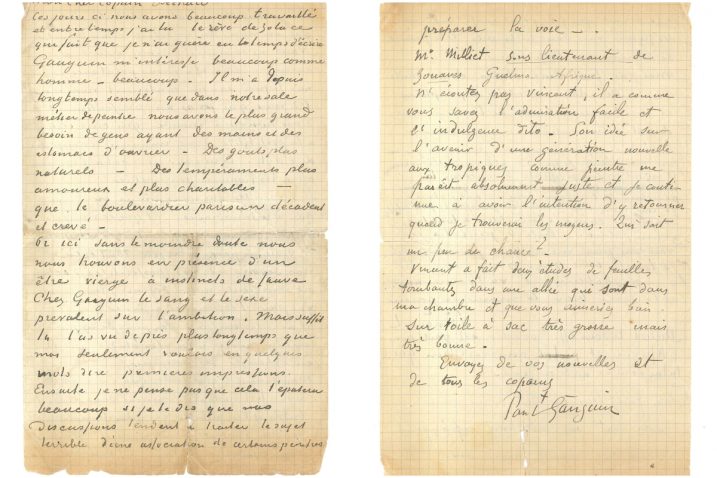 mon cher copain Bernard
ces jours ci nous avons beaucoup travaillé
et entretemps j'ai lu le rêve de Zola ce
qui fait que je n'ai guère eu le temps d'écrire
Gauguin m'intéresse beaucoup comme
homme – beaucoup – Il m'a depuis
longtemps semblé que dans notre sale
métier de peintre nous avons le plus grand
besoin de gens ayant des mains et des
estomacs d'ouvrier – Des gouts plus
naturels – Des tempéraments plus
amoureux et plus charitables –
que le boulevardier parisien décadent
et crevé –
Or ici sans le moindre doute nous
nous trouvons en présence d'un
être vierge à instincts de sauvage
Chez Gauguin le sang et le sexe
prévalent sur l'ambition. Mais suffit
tu l'as vu de près plus longtemps que
moi seulement voulais en quelques
mots dire premières impressions.
Ensuite je ne pense pas que cela t'épatera
beaucoup si je te dis que nos
discussions tendent à traiter le sujet
terrible d'une association de certains peintres
préparer la voie – .
Mr Milliet sous lieutenant de
Zouaves Guelma Afrique.
N'écoutez pas Vincent, il a comme
vous savez l'admiration facile et
l'indulgence dito – Son idée sur
l'avenir d'une génération nouvelle
aux tropiques comme peintre me
parait absolument juste et je conti-
nue à avoir l'intention d'y retourner
quand je trouverai les moyens. Qui sait
un peu de chance?
Vincent a fait deux études de feuilles
tombantes dans une allée qui sont dans
ma chambre et que vous aimeriez bien.
Sur toile à sac très grosse mais
très bonne.
Envoyez de vos nouvelles et
de tous les copains
Paul Gauguin